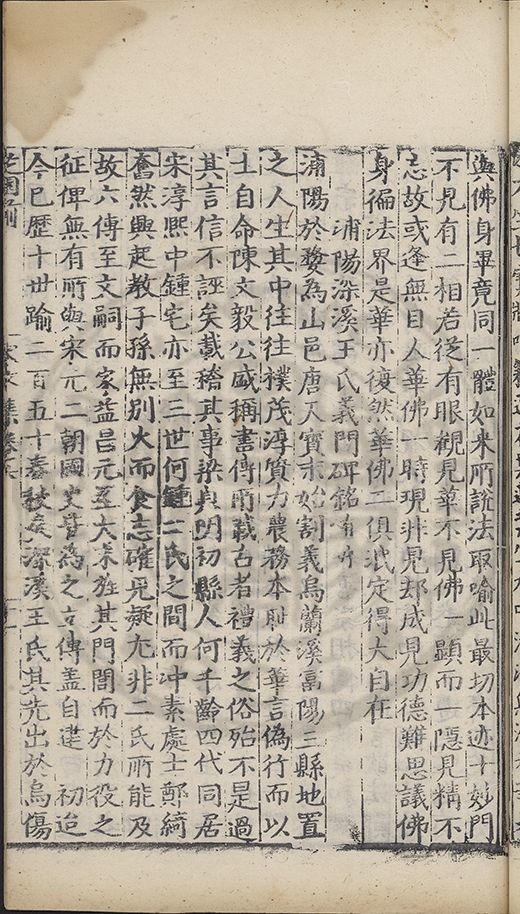 與佛身畢竟同一體如来所說法取喻此最切本迹十妙門
不見有二相若從有眼觀見華不見佛一顯而一隱見精不
忘故或逢無目人華佛一時現非見却成見功德難思議佛
身徧法界是華亦復然華佛二俱泯定得大自在
浦陽深溪王氏義門碑銘有序
浦陽於婺為山邑唐天寶末始割義烏蘭溪富陽三縣地置
之人生其中往往樸茂淳質力農務本耻於華言偽行而以
士自命陳文毅公盛稱書傳所載古者禮義之俗殆不是過
其言信不誣矣載稽其事梁貞明初縣人何千齡四代同居
宋淳熈中鍾宅亦至三世何鍾二氏之間而冲素處士鄭綺
奮然興起教子孫無别火而食志確見凝尤非二氏所能及
故六傳至文嗣而家益昌元至大旌其門閭而於力役之
征俾無有所與宋元二朝國史皆為之立傳盖自建初迨
今已歷十世踰二百五十春秋矣深溪王氏其先出於烏傷